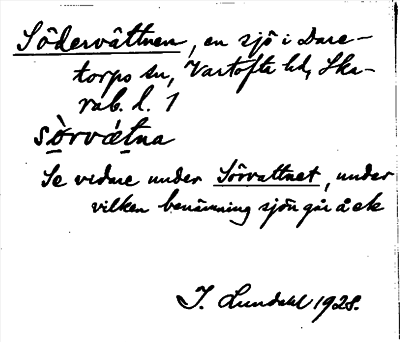 Södervattnen, en sjö i Dare-
torps sn, Vartofta hd, Ska-
rab. l. 1
sò̱rvǽṯna
Se vidare under Sörvattnet, under
vilken benämning sjön går å ek
I. Lundahl 1928.